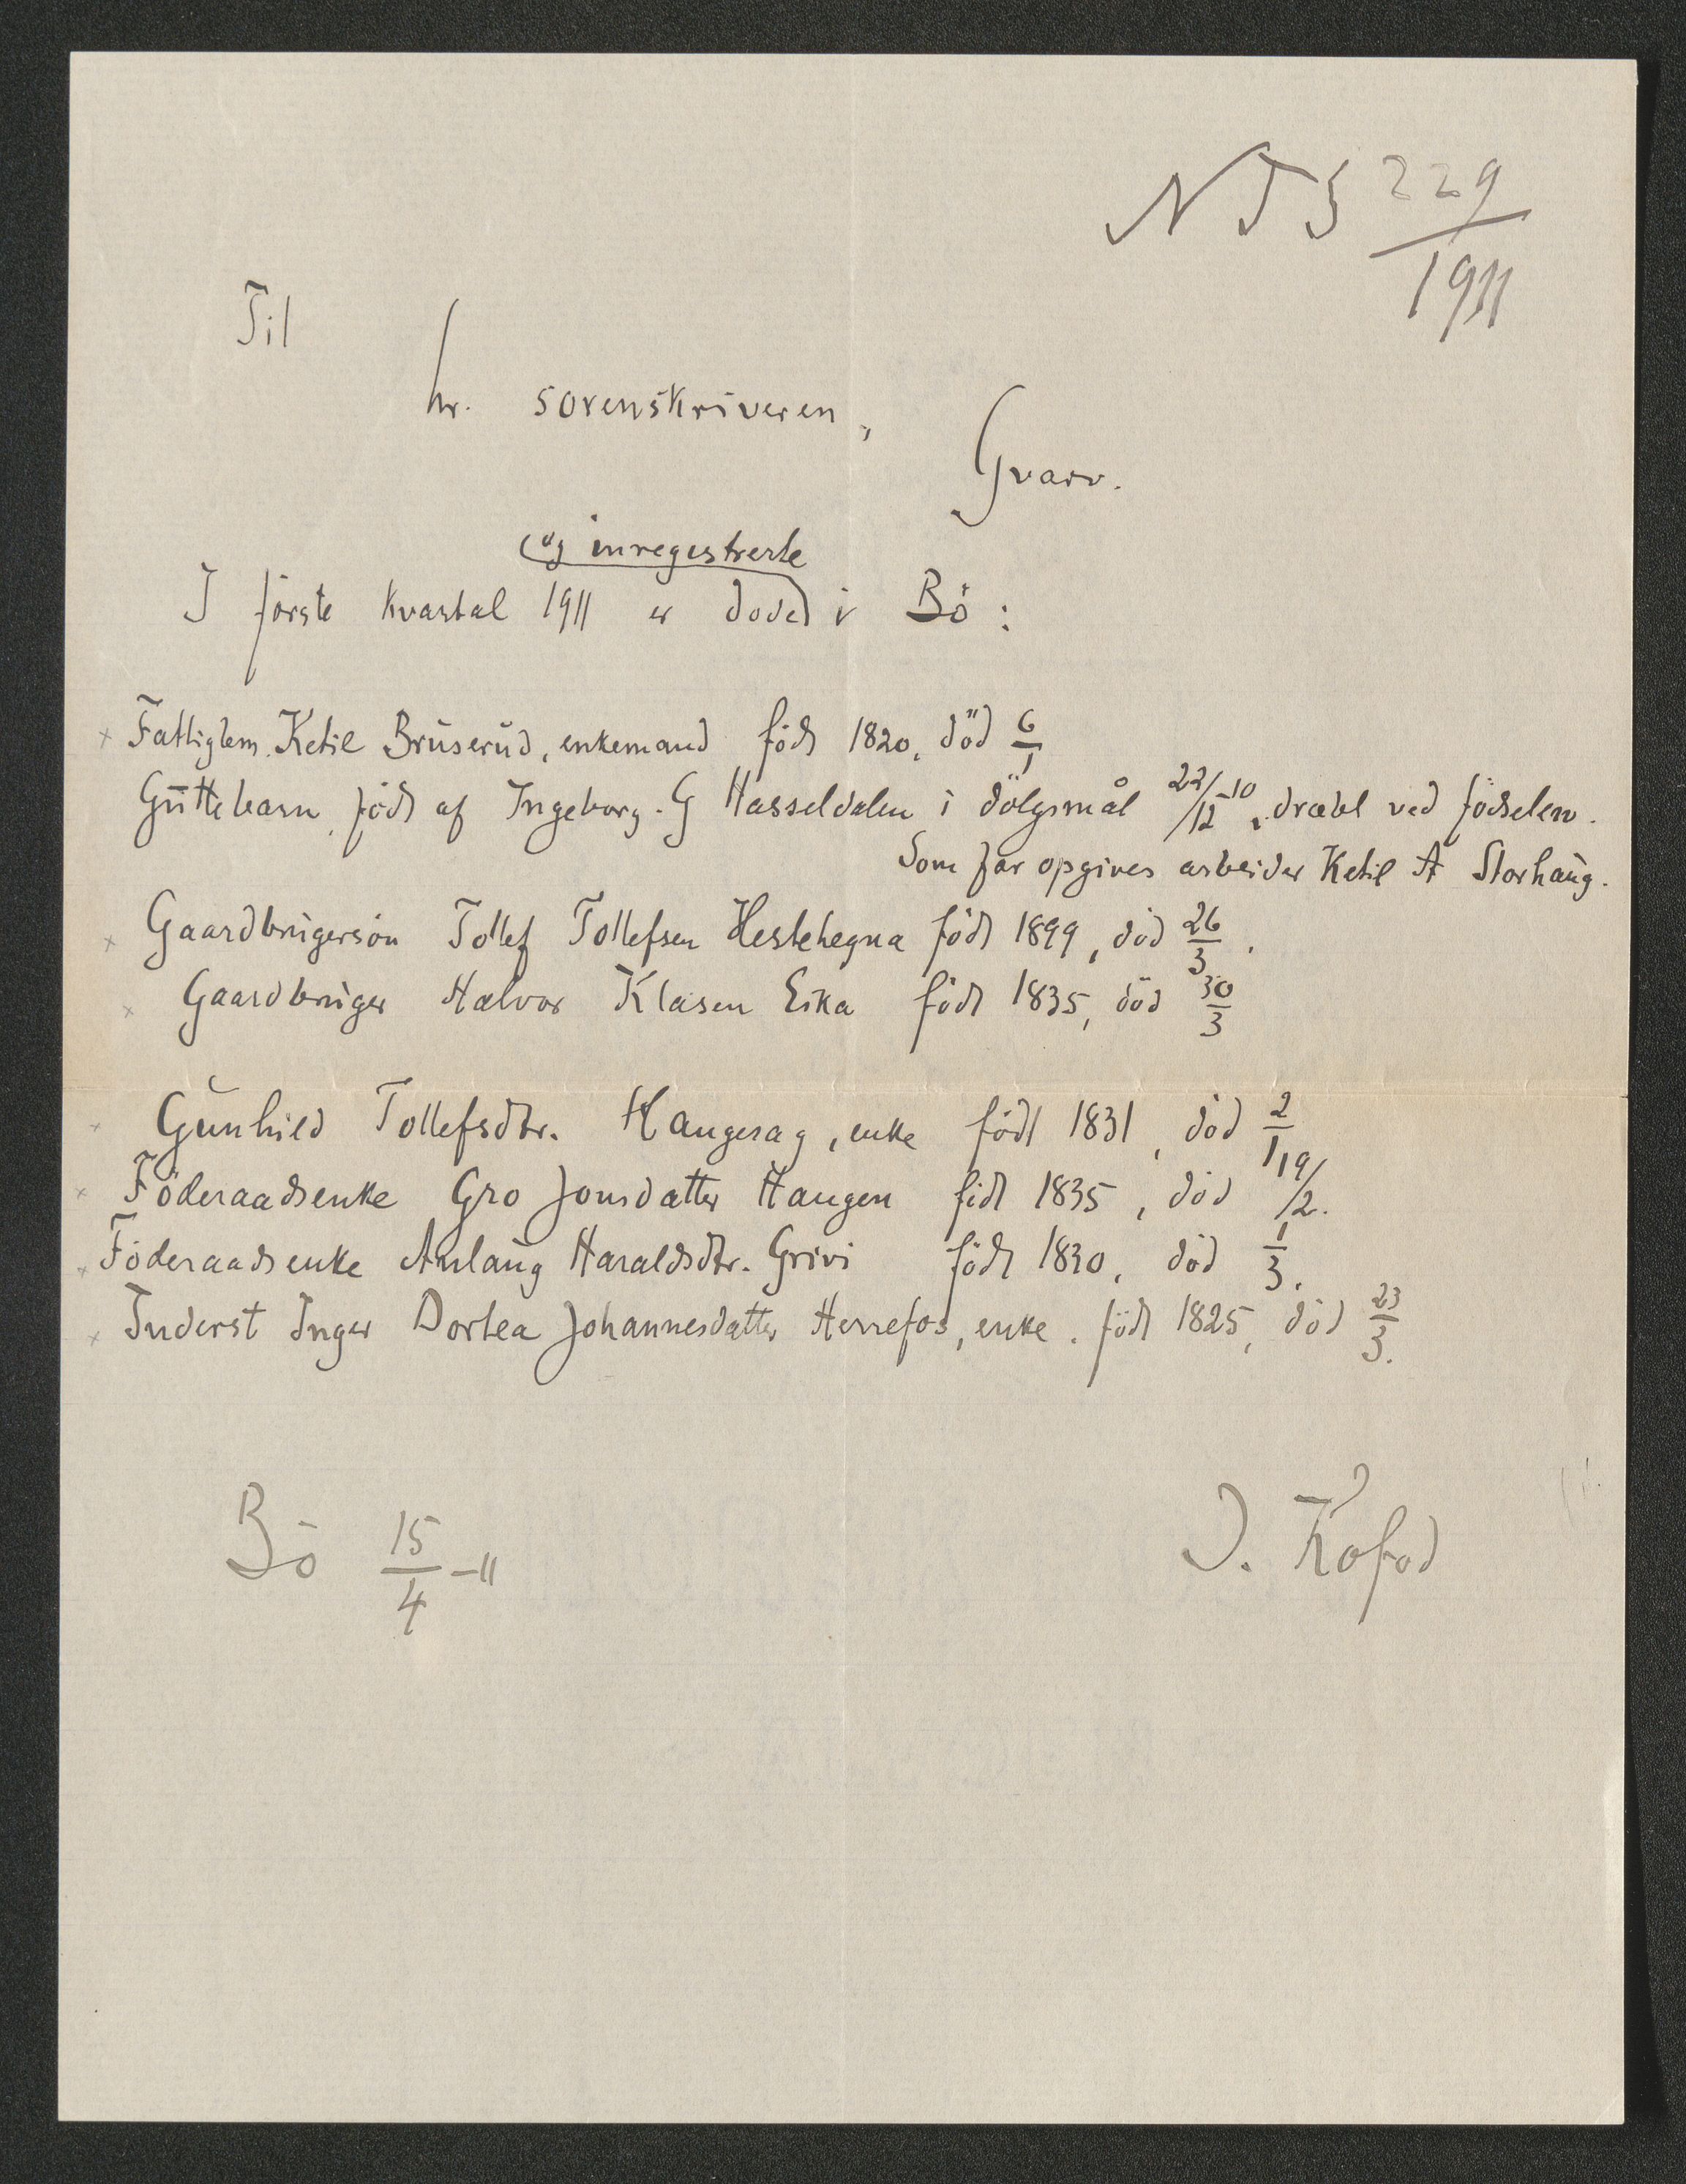 NTS 229/1911
Til
hr. sorenskriveren,
Gvarv.
(og inregistrerte
I første kvartal 1911 er døde) i Bö:
× Fattiglem. Ketil Bruserud, enkemand født 1820, död 6/1
Guttebarn, födt af Ingeborg. G Hasseldalen i dölgsmål 22/12-10, dræbt ved födselen.
Som far opgives arbeider Ketil A Storhaug.
× Gaardbrugersön Tollef Tollefsen Hestehegna födt 1899, död 26/3.
× Gaardbruger Halvor Klasen Eika födt 1835, död 30/3
× Gunhild Tollefsdtr. Haugesag, enke födt 1831, död 2/1
× Föderaadsenke Gro Jonsdatter Haugen födt 1835, död 19/2.
× Föderaadsenke Anlaug Haraldsdtr. Grivi födt 1830, död 1/3.
× Inderst Inger Dortea Johannesdatter Herrefos, enke. födt 1825, död 23/3.
Bö 15/4-11
D. Kofod